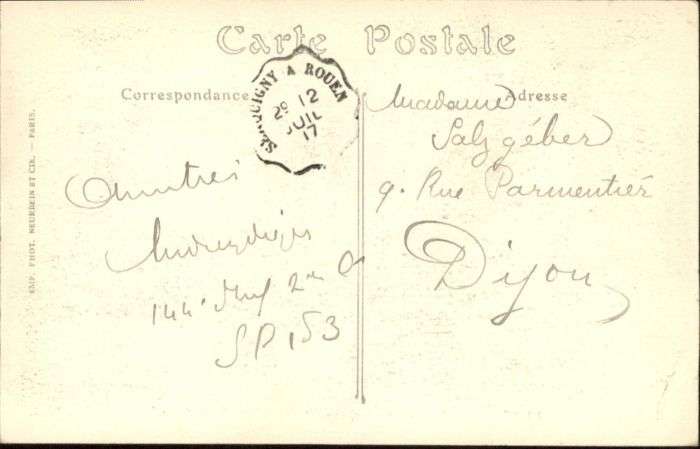 Carte Postale
Correspondance
Adresse
SERQUIGNY A ROUEN
2º 12
JUIL
17
Madame
Salzgéber
9. Rue Parmentier
Dijon
144e Inf 2me
SP 153
IMP. PHOT. NEURDEIN ET CIE. — PARIS.